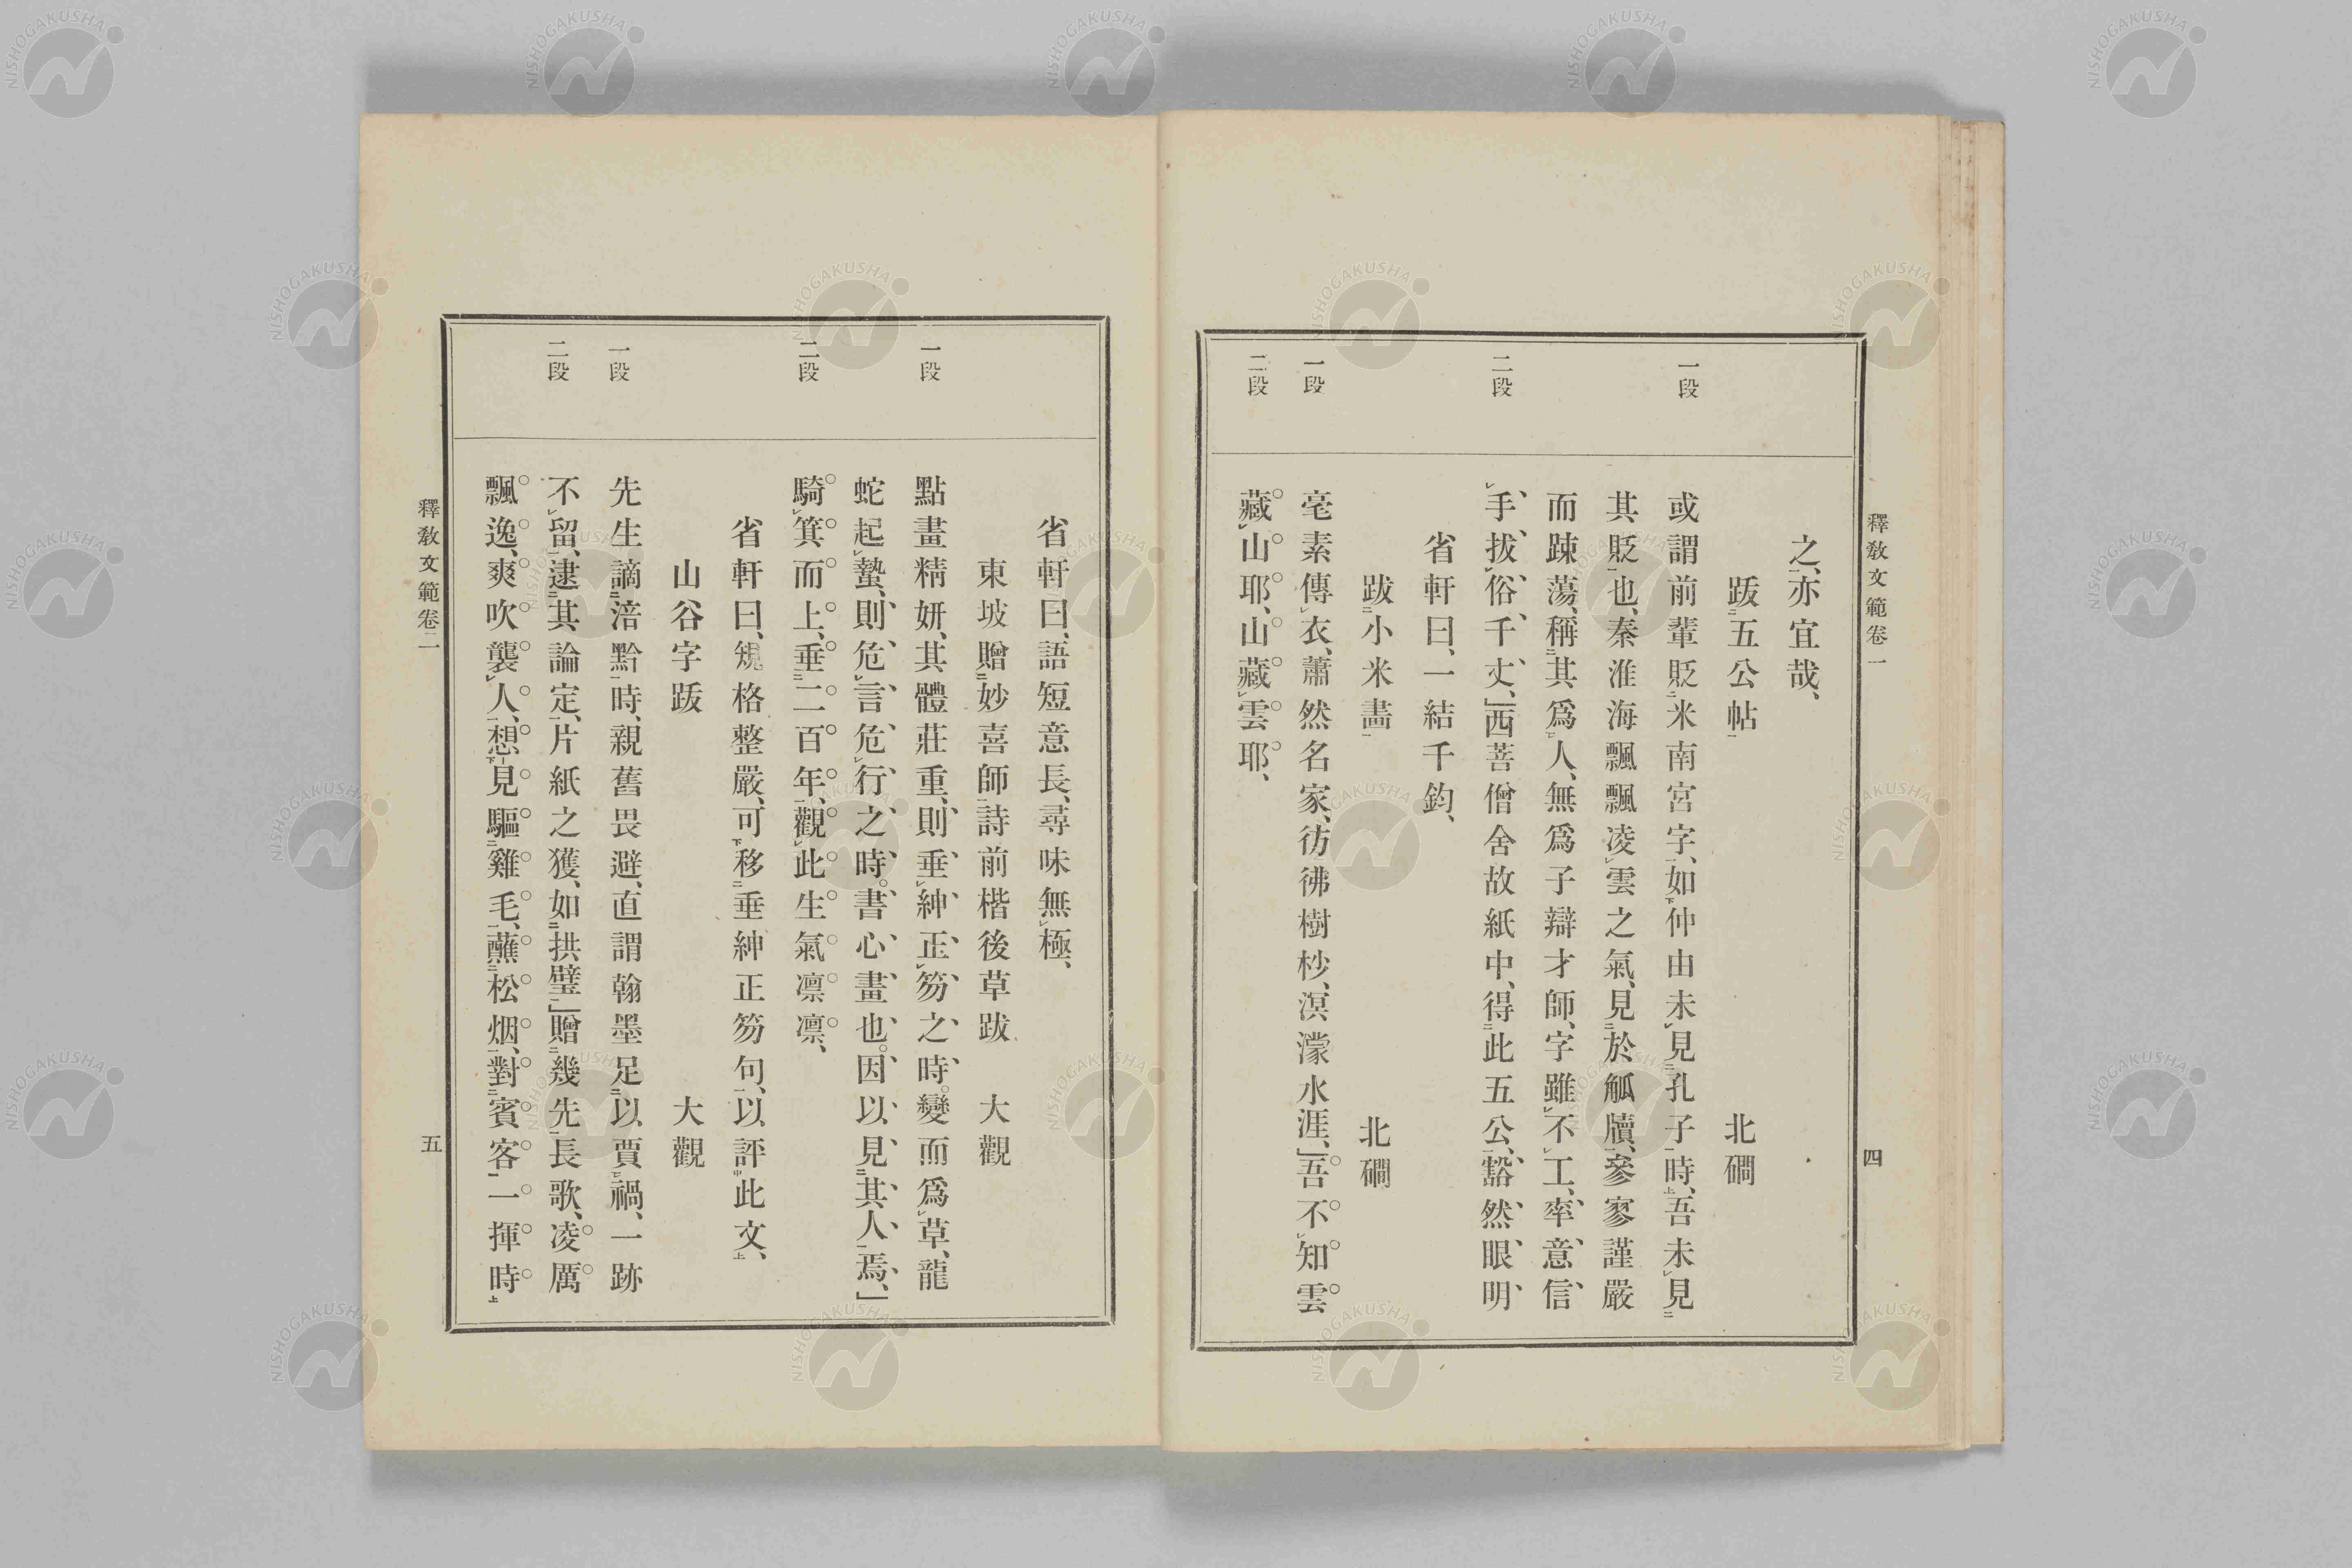 釋教文範卷一
四
之、亦宜哉、
跋二五公帖一
北磵
一段
或謂前輩貶二米南宮字一、如下仲由未レ見二孔子一時上、吾未レ見二
其貶一也、秦淮海飄飄凌レ雲之氣、見二於觚牘一、參寥謹嚴
而踈蕩、稱三其爲レ人、無爲子辯才師、字雖レ不レ工、率意信
二段
レ手、拔レ俗千丈、」西菩僧舍故紙中、得二此五公一、豁然眼明
省軒曰、一結千鈞、
跋二小米畵一
北磵
一段
毫素傳レ衣、蕭然名家、彷彿樹杪、溟濛水涯、」吾不レ知雲
二段
藏レ山耶、山藏レ雲耶、
省軒曰、語短意長、尋味無レ極、
東坡贈二妙喜師一詩前楷後草跋
大觀
一段
點畫精妍、其體莊重、則垂レ紳正レ笏之時。變而爲レ草、龍
蛇起レ蟄、則危レ言危レ行之時。書心畫也。因以見二其人一焉、」
二段
騎レ箕而上、垂二二百年一、觀レ此生氣凛凛、
省軒曰、規格整嚴、可下移二垂紳正笏句一、以評中此文上、
山谷字跋
大觀
一段
先生謫二涪黔一時、親舊畏避、直謂翰墨足二以賈一レ禍、一跡
二段
不レ留、逮二其論定一、片紙之獲、如二拱璧一」贈二幾先一長歌、凌厲
飄逸、爽吹襲レ人、想下見驅二雞毛一、蘸二松烟一、對二賓客一一揮時上
釋教文範卷二
五